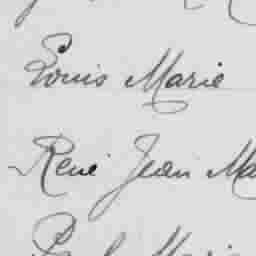 Louis Marie
René Jean Ma
Paul Marie